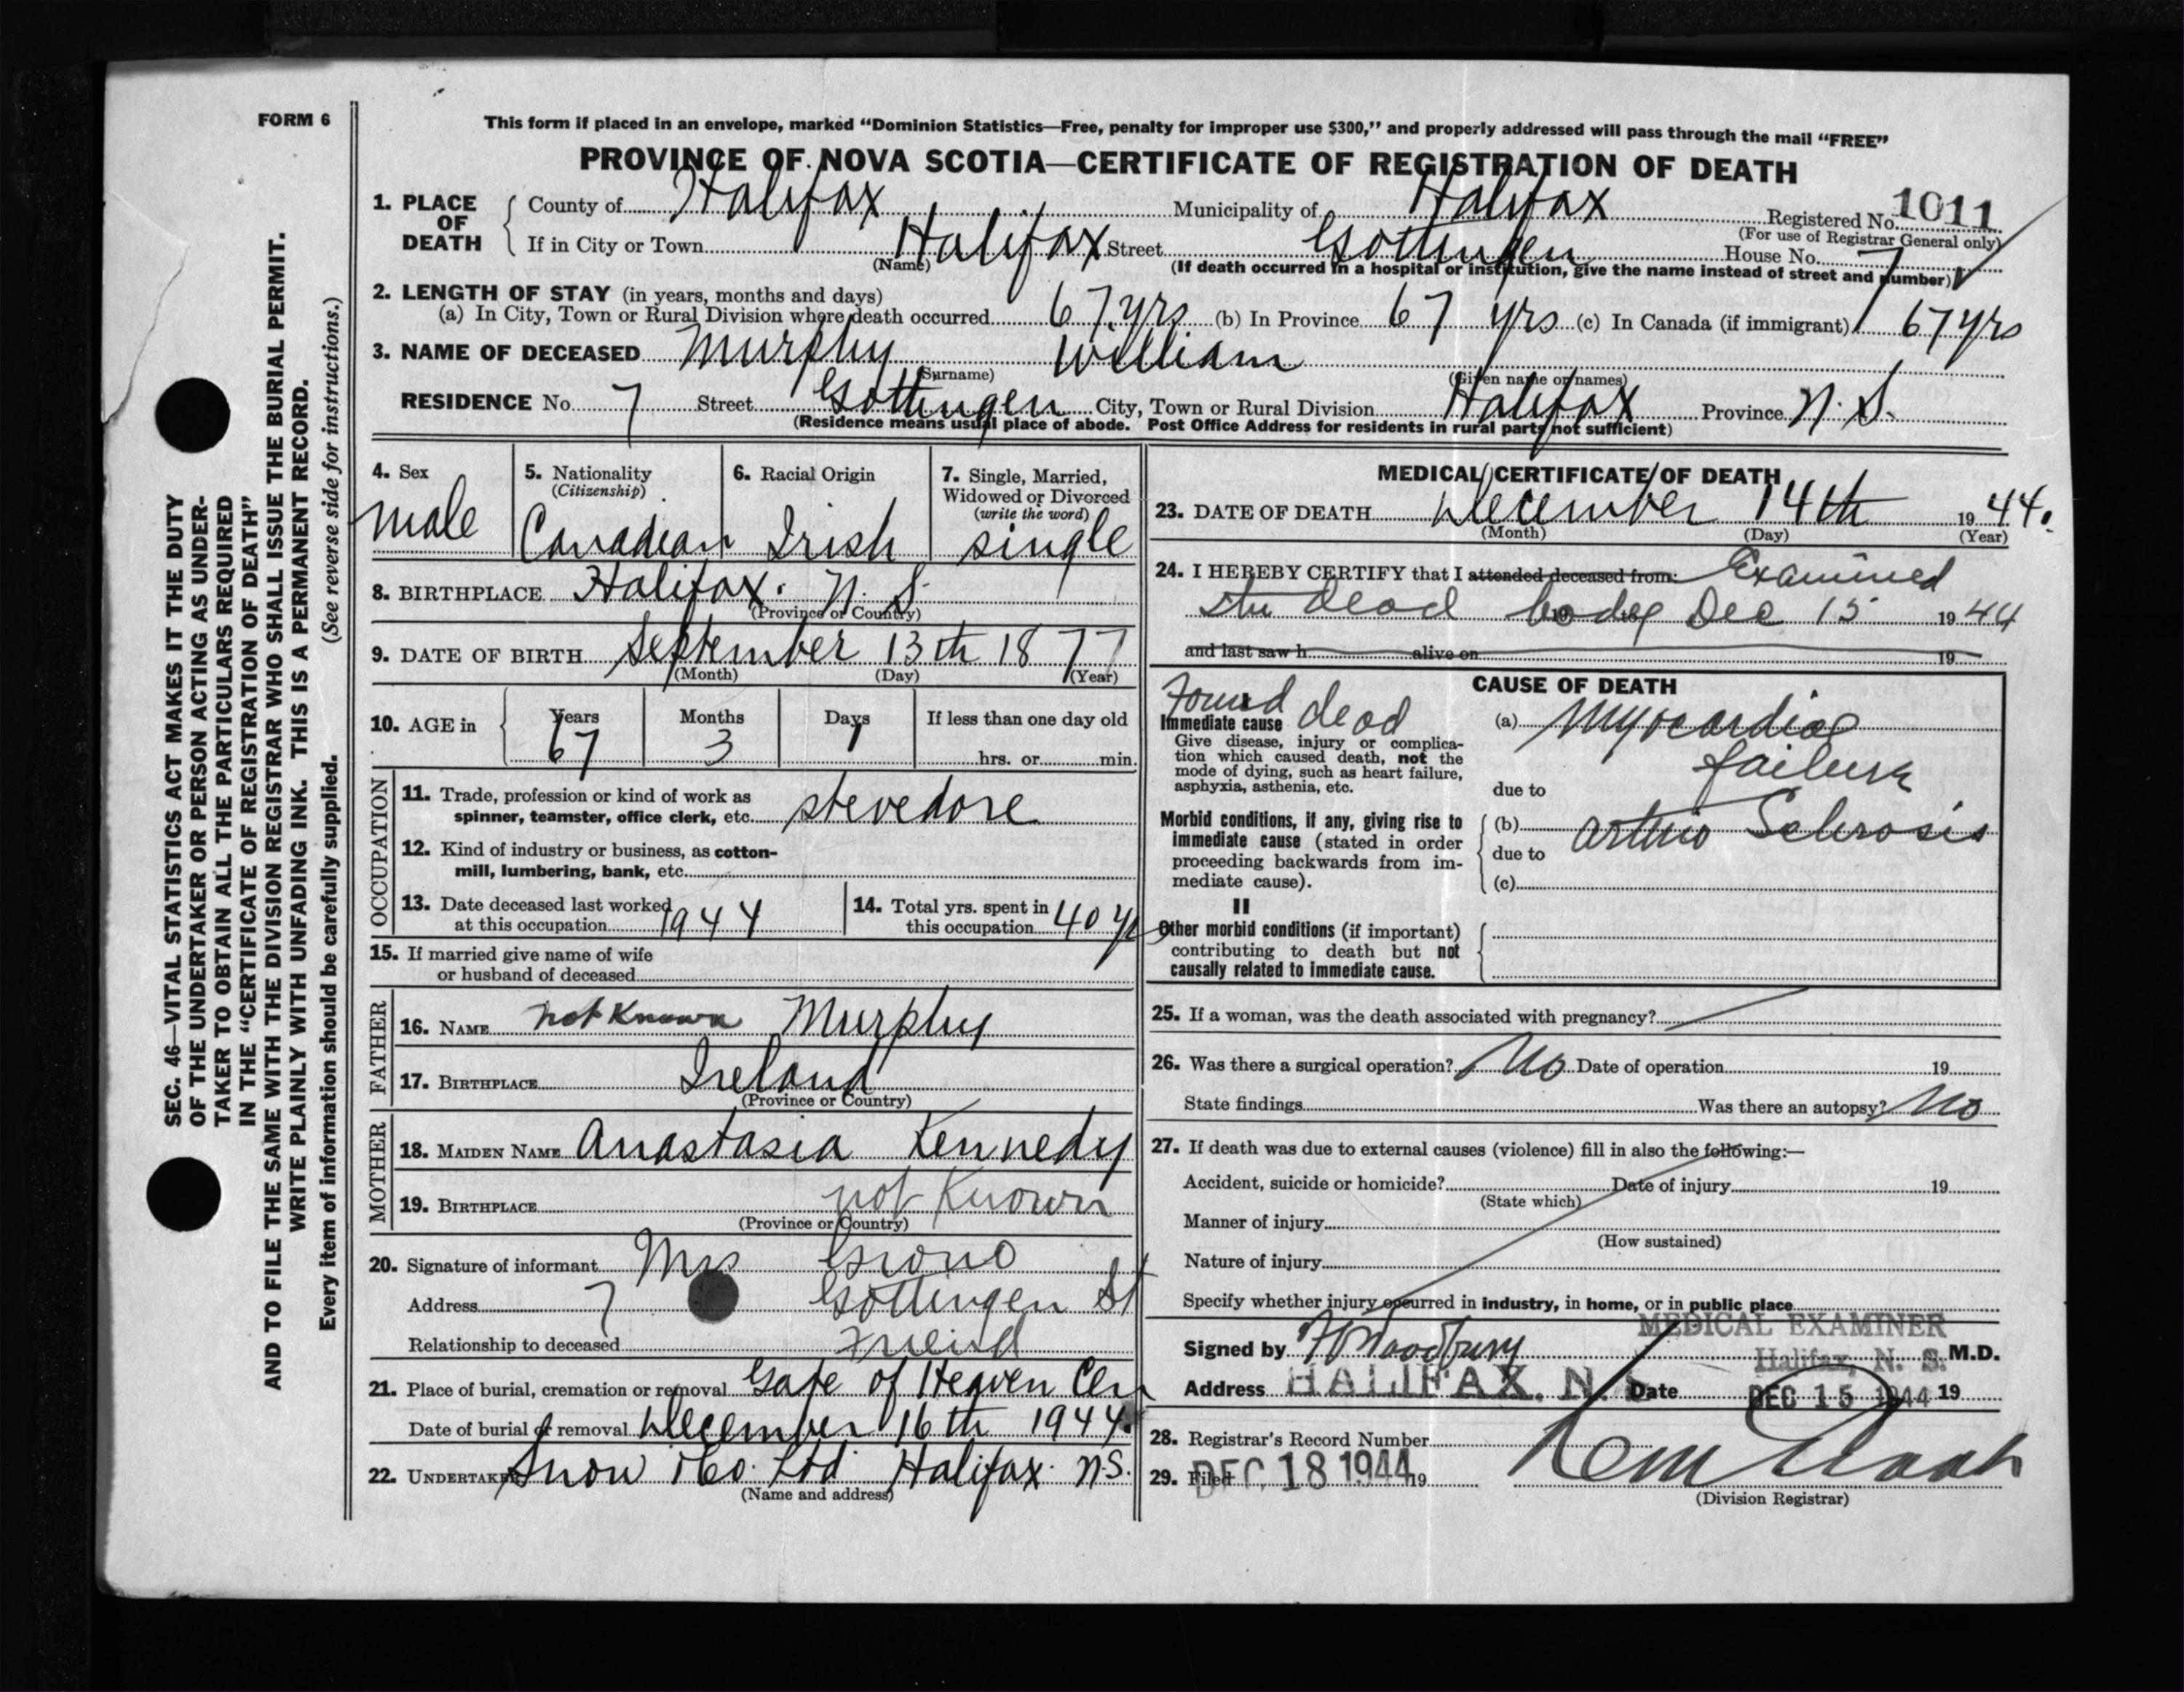 FORM 6
This form if placed in an envelope, marked "Dominion Statistics—Free, penalty for improper use $300," and properly addressed will pass through the mail "FREE"
PROVINCE OF NOVA SCOTIA—CERTIFICATE OF REGISTRATION OF DEATH
1. PLACE OF DEATH County of Halifax Municipality of Halifax Registered No. 1011
(For use of Registrar General only)
If in City or Town Halifax Street Gottingen House No. 7
(Name) (If death occurred in a hospital or institution, give the name instead of street and number)
2. LENGTH OF STAY (in years, months and days)
(a) In City, Town or Rural Division where death occurred 67 yrs. (b) In Province 67 yrs (c) In Canada (if immigrant) 67 yrs
3. NAME OF DECEASED Murphy William
(Surname) (Given name or names)
RESIDENCE No. 7 Street Gottingen City, Town or Rural Division Halifax Province N. S.
(Residence means usual place of abode. Post Office Address for residents in rural parts not sufficient)
4. Sex
male
5. Nationality
(Citizenship)
Canadian
6. Racial Origin
Irish
7. Single, Married,
Widowed or Divorced
(write the word)
single
8. BIRTHPLACE Halifax. N. S.
(Province or Country)
9. DATE OF BIRTH September 13th 1877
(Month) (Day) (Year)
10. AGE in Years Months Days If less than one day old
67 3 1 hrs. or min.
OCCUPATION
11. Trade, profession or kind of work as
spinner, teamster, office clerk, etc. stevedore
12. Kind of industry or business, as cotton-
mill, lumbering, bank, etc.
13. Date deceased last worked
at this occupation 1944
14. Total yrs. spent in
this occupation 40 y
15. If married give name of wife
or husband of deceased
FATHER
16. NAME not Known Murphy
17. BIRTHPLACE Ireland
(Province or Country)
MOTHER
18. MAIDEN NAME Anastasia Kennedy
19. BIRTHPLACE not Known
(Province or Country)
20. Signature of informant Mrs
Address 7 Gottingen St
Relationship to deceased Friend
21. Place of burial, cremation or removal Gate of Heaven Cem
Date of burial or removal December 16th 1944.
22. UNDERTAKER Snow & Co. Ltd Halifax N.S.
(Name and address)
MEDICAL CERTIFICATE OF DEATH
23. DATE OF DEATH December 14th 1944.
(Month) (Day) (Year)
24. I HEREBY CERTIFY that I attended deceased from: Examined
the dead body Dec 15 1944
and last saw h alive on 19
CAUSE OF DEATH
Found dead
Immediate cause
Give disease, injury or complica-
tion which caused death, not the
mode of dying, such as heart failure,
asphyxia, asthenia, etc.
(a) Myocardial
failure
due to
Morbid conditions, if any, giving rise to
immediate cause (stated in order
proceeding backwards from im-
mediate cause).
(b) Arterio Sclerosis
due to
(c)
II
Other morbid conditions (if important)
contributing to death but not
causally related to immediate cause.
25. If a woman, was the death associated with pregnancy?
26. Was there a surgical operation? No Date of operation 19
State findings Was there an autopsy? No
27. If death was due to external causes (violence) fill in also the following:—
Accident, suicide or homicide? Date of injury 19
(State which)
Manner of injury
(How sustained)
Nature of injury
Specify whether injury occurred in industry, in home, or in public place
MEDICAL EXAMINER
Signed by Woodbury Halifax, N. S. M.D.
Address HALIFAX, N. S. Date DEC 15 1944 19
28. Registrar's Record Number
29. Filed DEC 18 1944 19
(Division Registrar)
SEC. 46—VITAL STATISTICS ACT MAKES IT THE DUTY
OF THE UNDERTAKER OR PERSON ACTING AS UNDER-
TAKER TO OBTAIN ALL THE PARTICULARS REQUIRED
IN THE "CERTIFICATE OF REGISTRATION OF DEATH"
AND TO FILE THE SAME WITH THE DIVISION REGISTRAR WHO SHALL ISSUE THE BURIAL PERMIT.
WRITE PLAINLY WITH UNFADING INK. THIS IS A PERMANENT RECORD.
Every item of information should be carefully supplied. (See reverse side for instructions.)